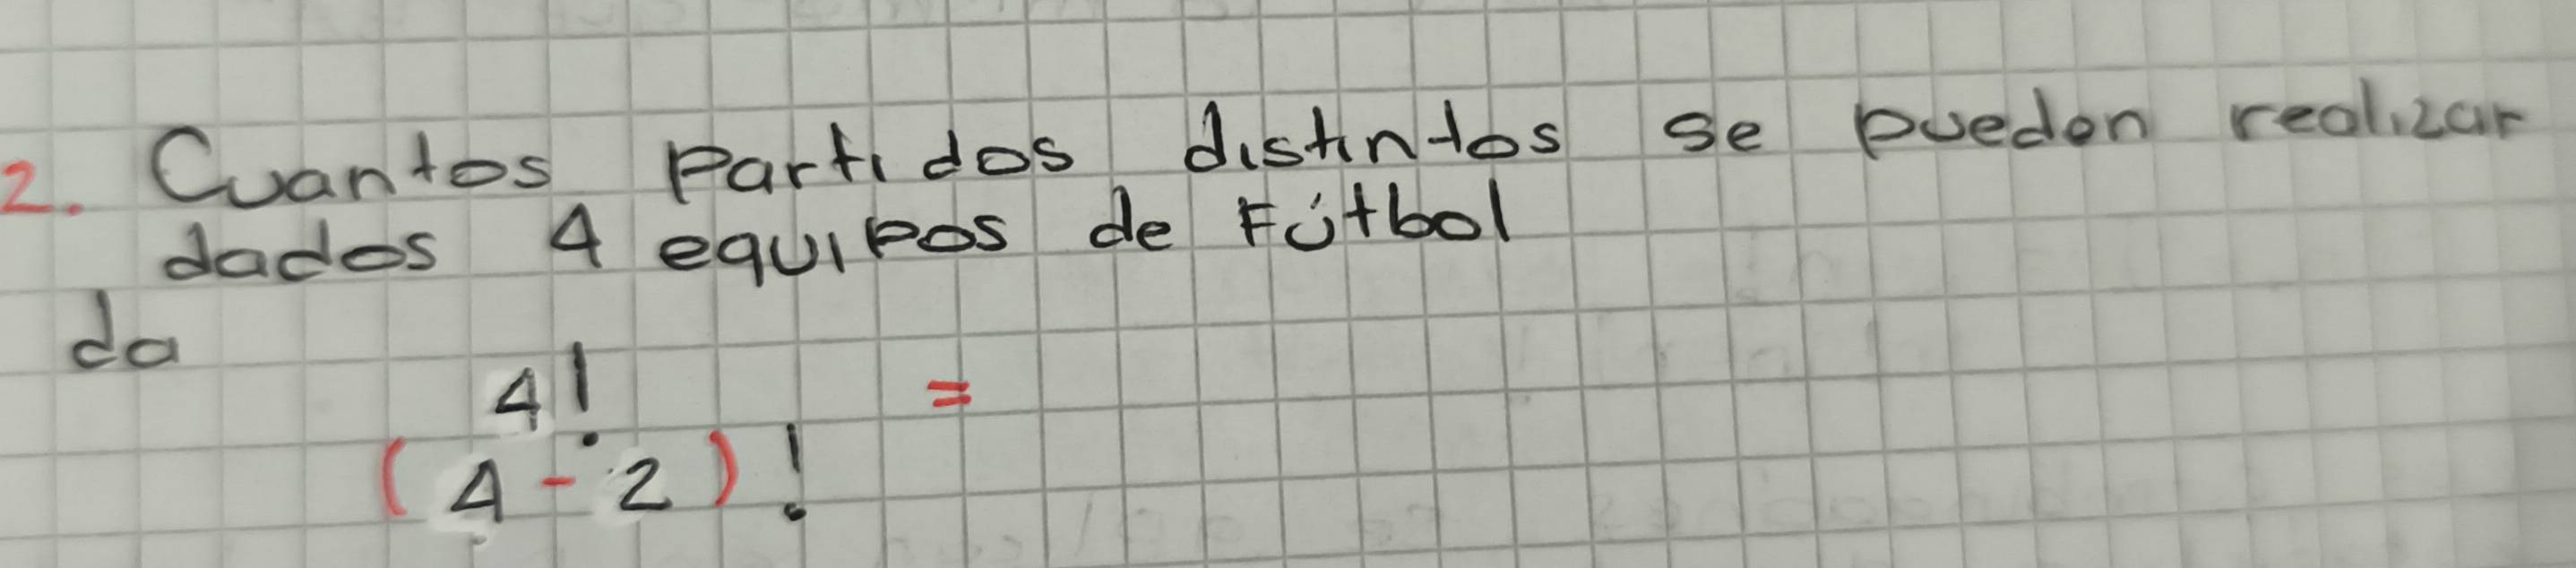 2. Cuantos Partidos distintos se pueden realizar
dados 4 equipos de Fútbol
da
4! =
(4-2)!